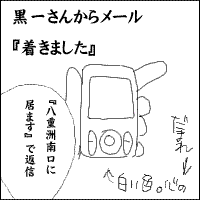 黒一さんからメール
『着きました』
『八重洲南口に
居ます』で返信
だまれ
白い色。心の